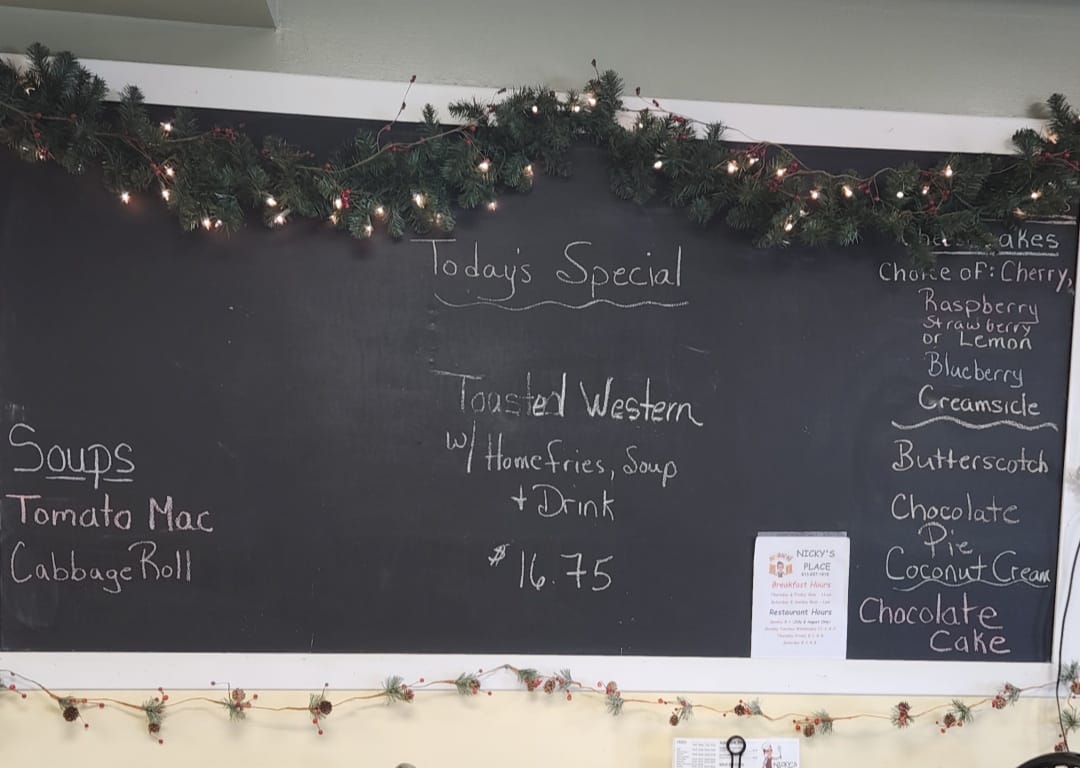 Today's Special
Toasted Western
w/ Homefries, Soup
+ Drink
$16.75
Soups
Tomato Mac
Cabbage Roll
Choice of: Cherry,
Raspberry
Strawberry
or Lemon
Blueberry
Creamsicle
Butterscotch
Chocolate
Pie
Coconut Cream
Chocolate
Cake
NICKY'S
PLACE
Breakfast Hours
Restaurant Hours